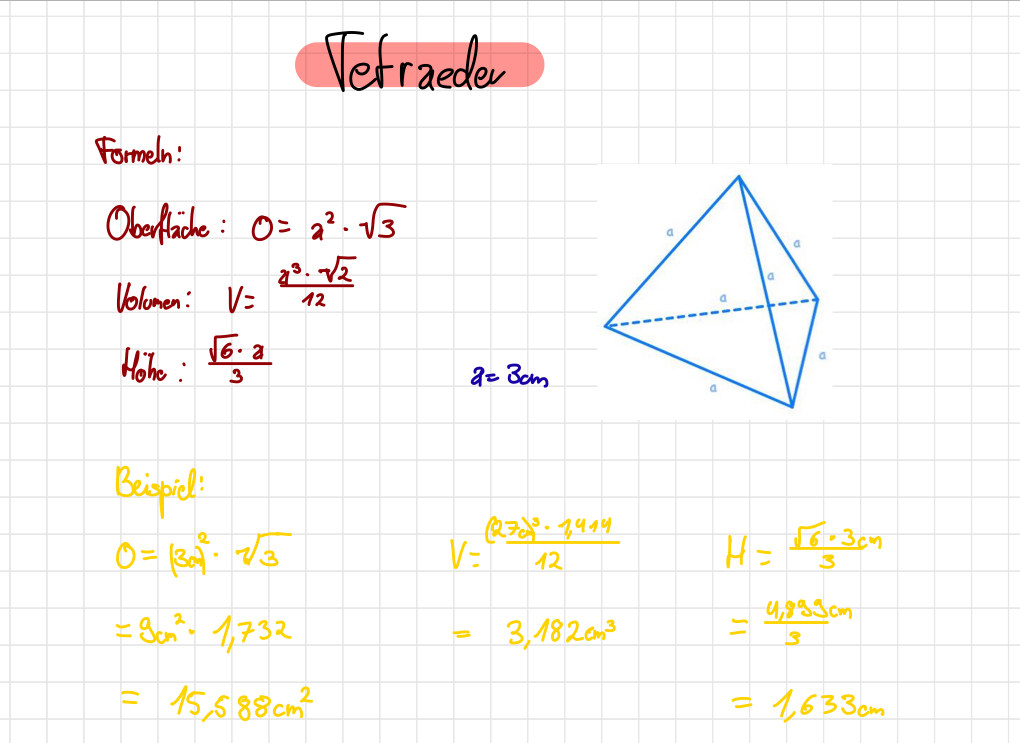 Tetraeder
Formeln:
Oberfläche: O = a² · √3
Volumen: V = (a³ · √2)/12
Höhe: (√6 · a)/3
a = 3cm
a
a
a
a
a
a
Beispiel:
O = (3cm)² · √3
= 9cm² · 1,732
= 15,588cm²
V = ((27cm)³ · 1,414)/12
= 3,182cm³
H = (√6 · 3cm)/3
= 4,899cm/3
= 1,633cm